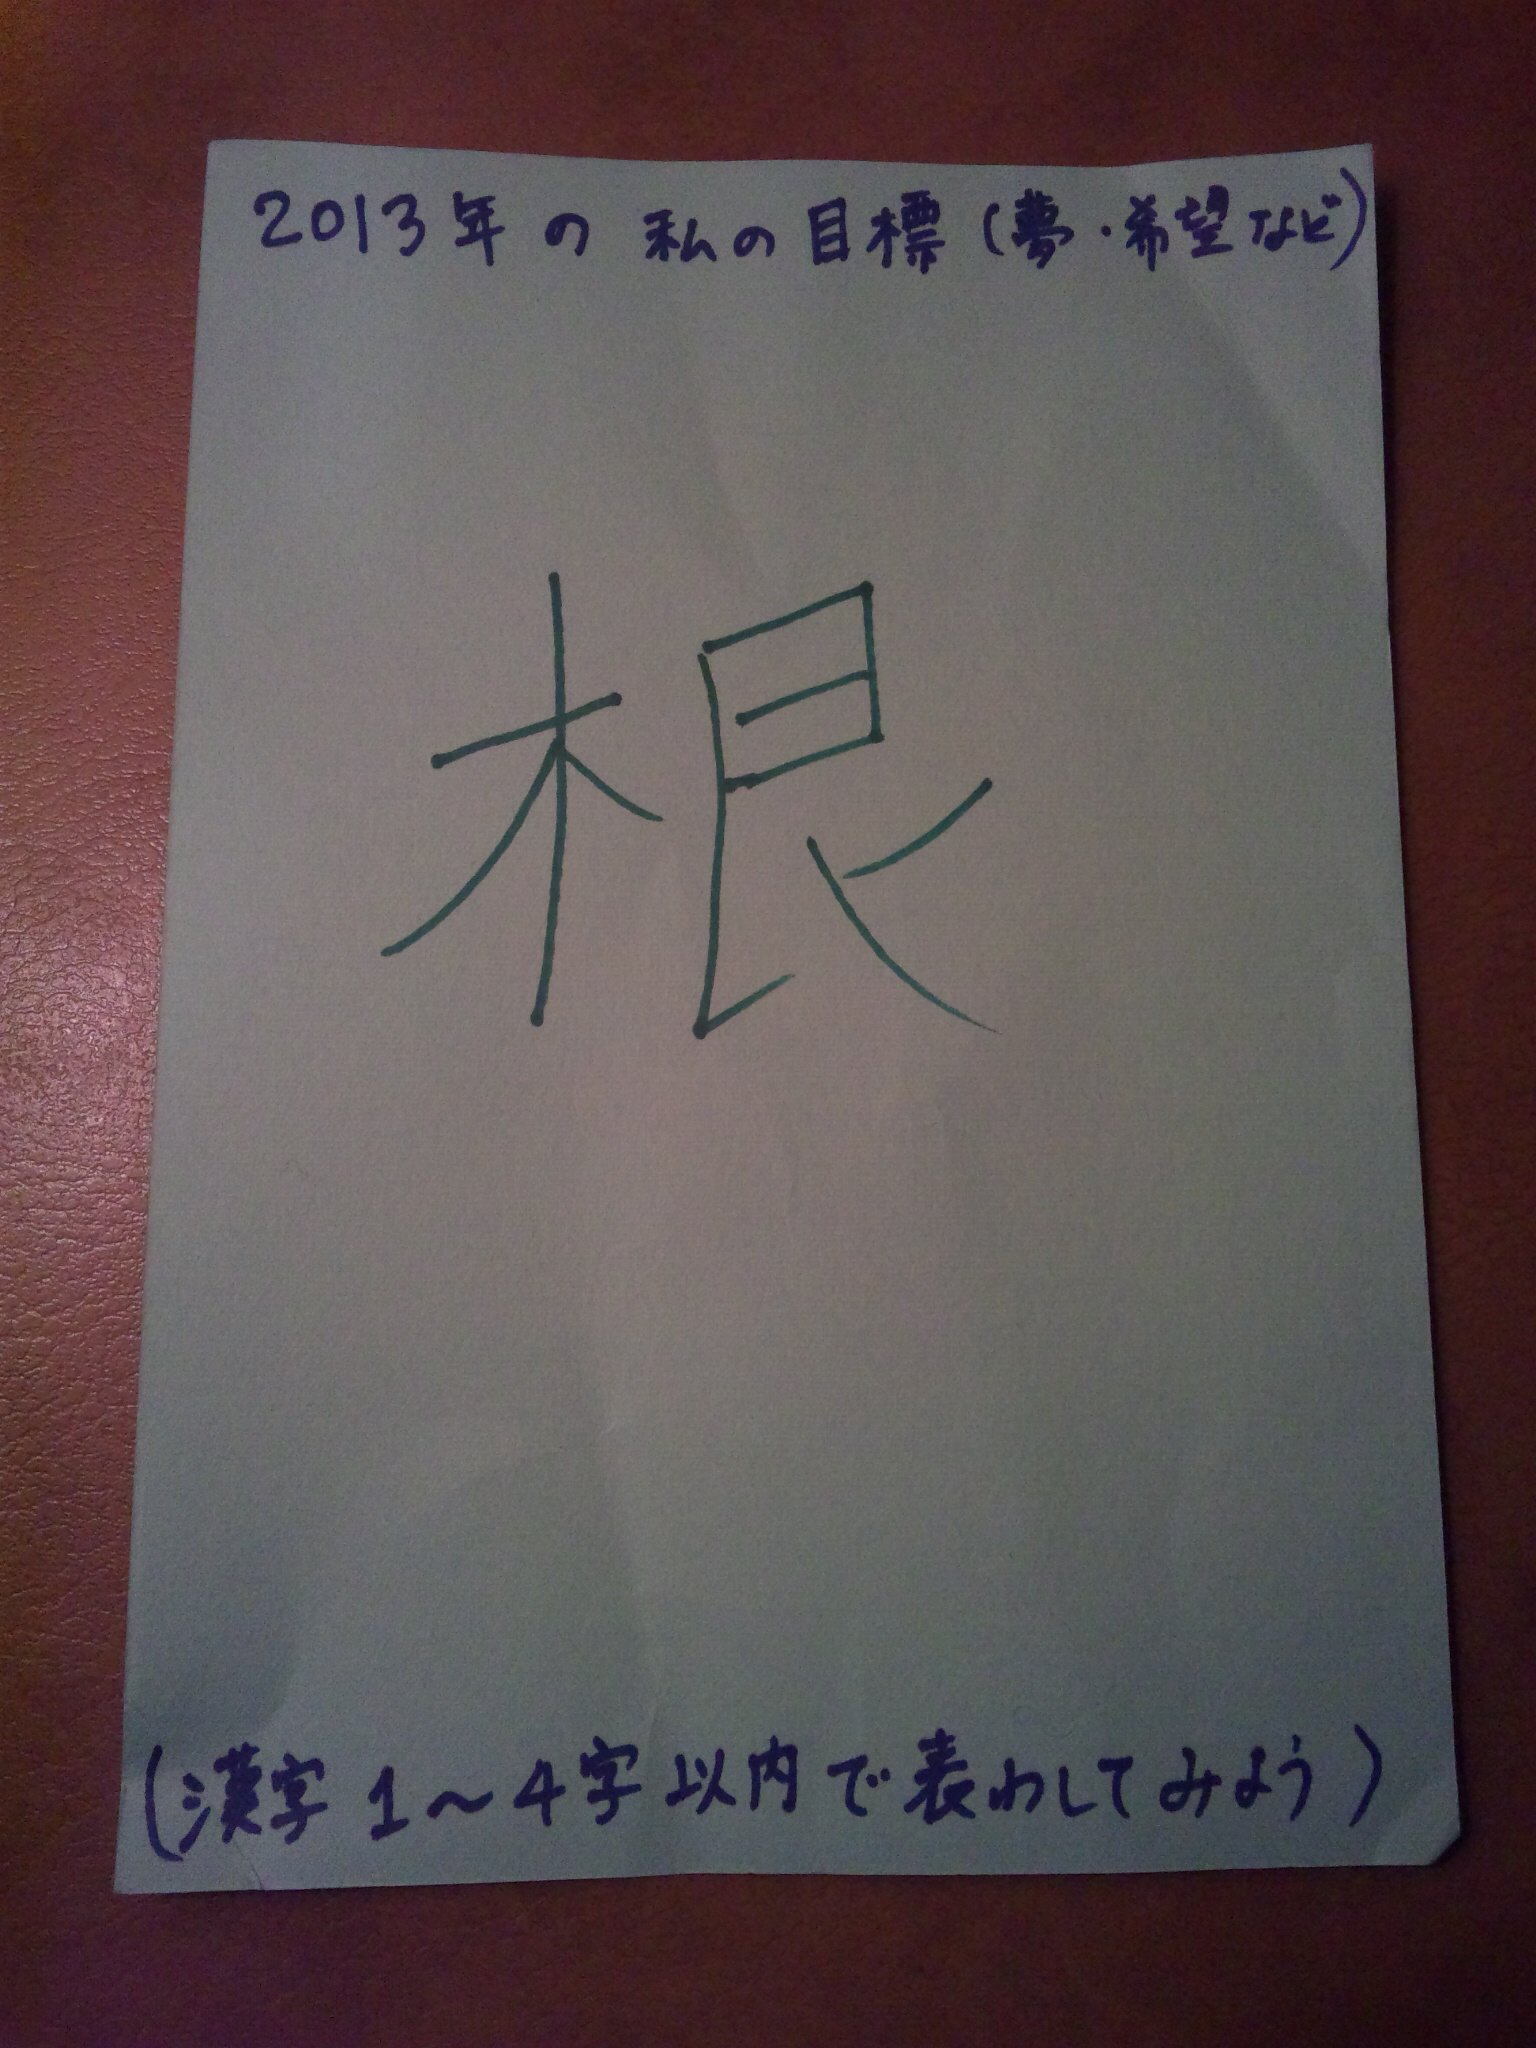 2013年の私の目標(夢・希望など)
根
(漢字1〜4字以内で表わしてみよう)